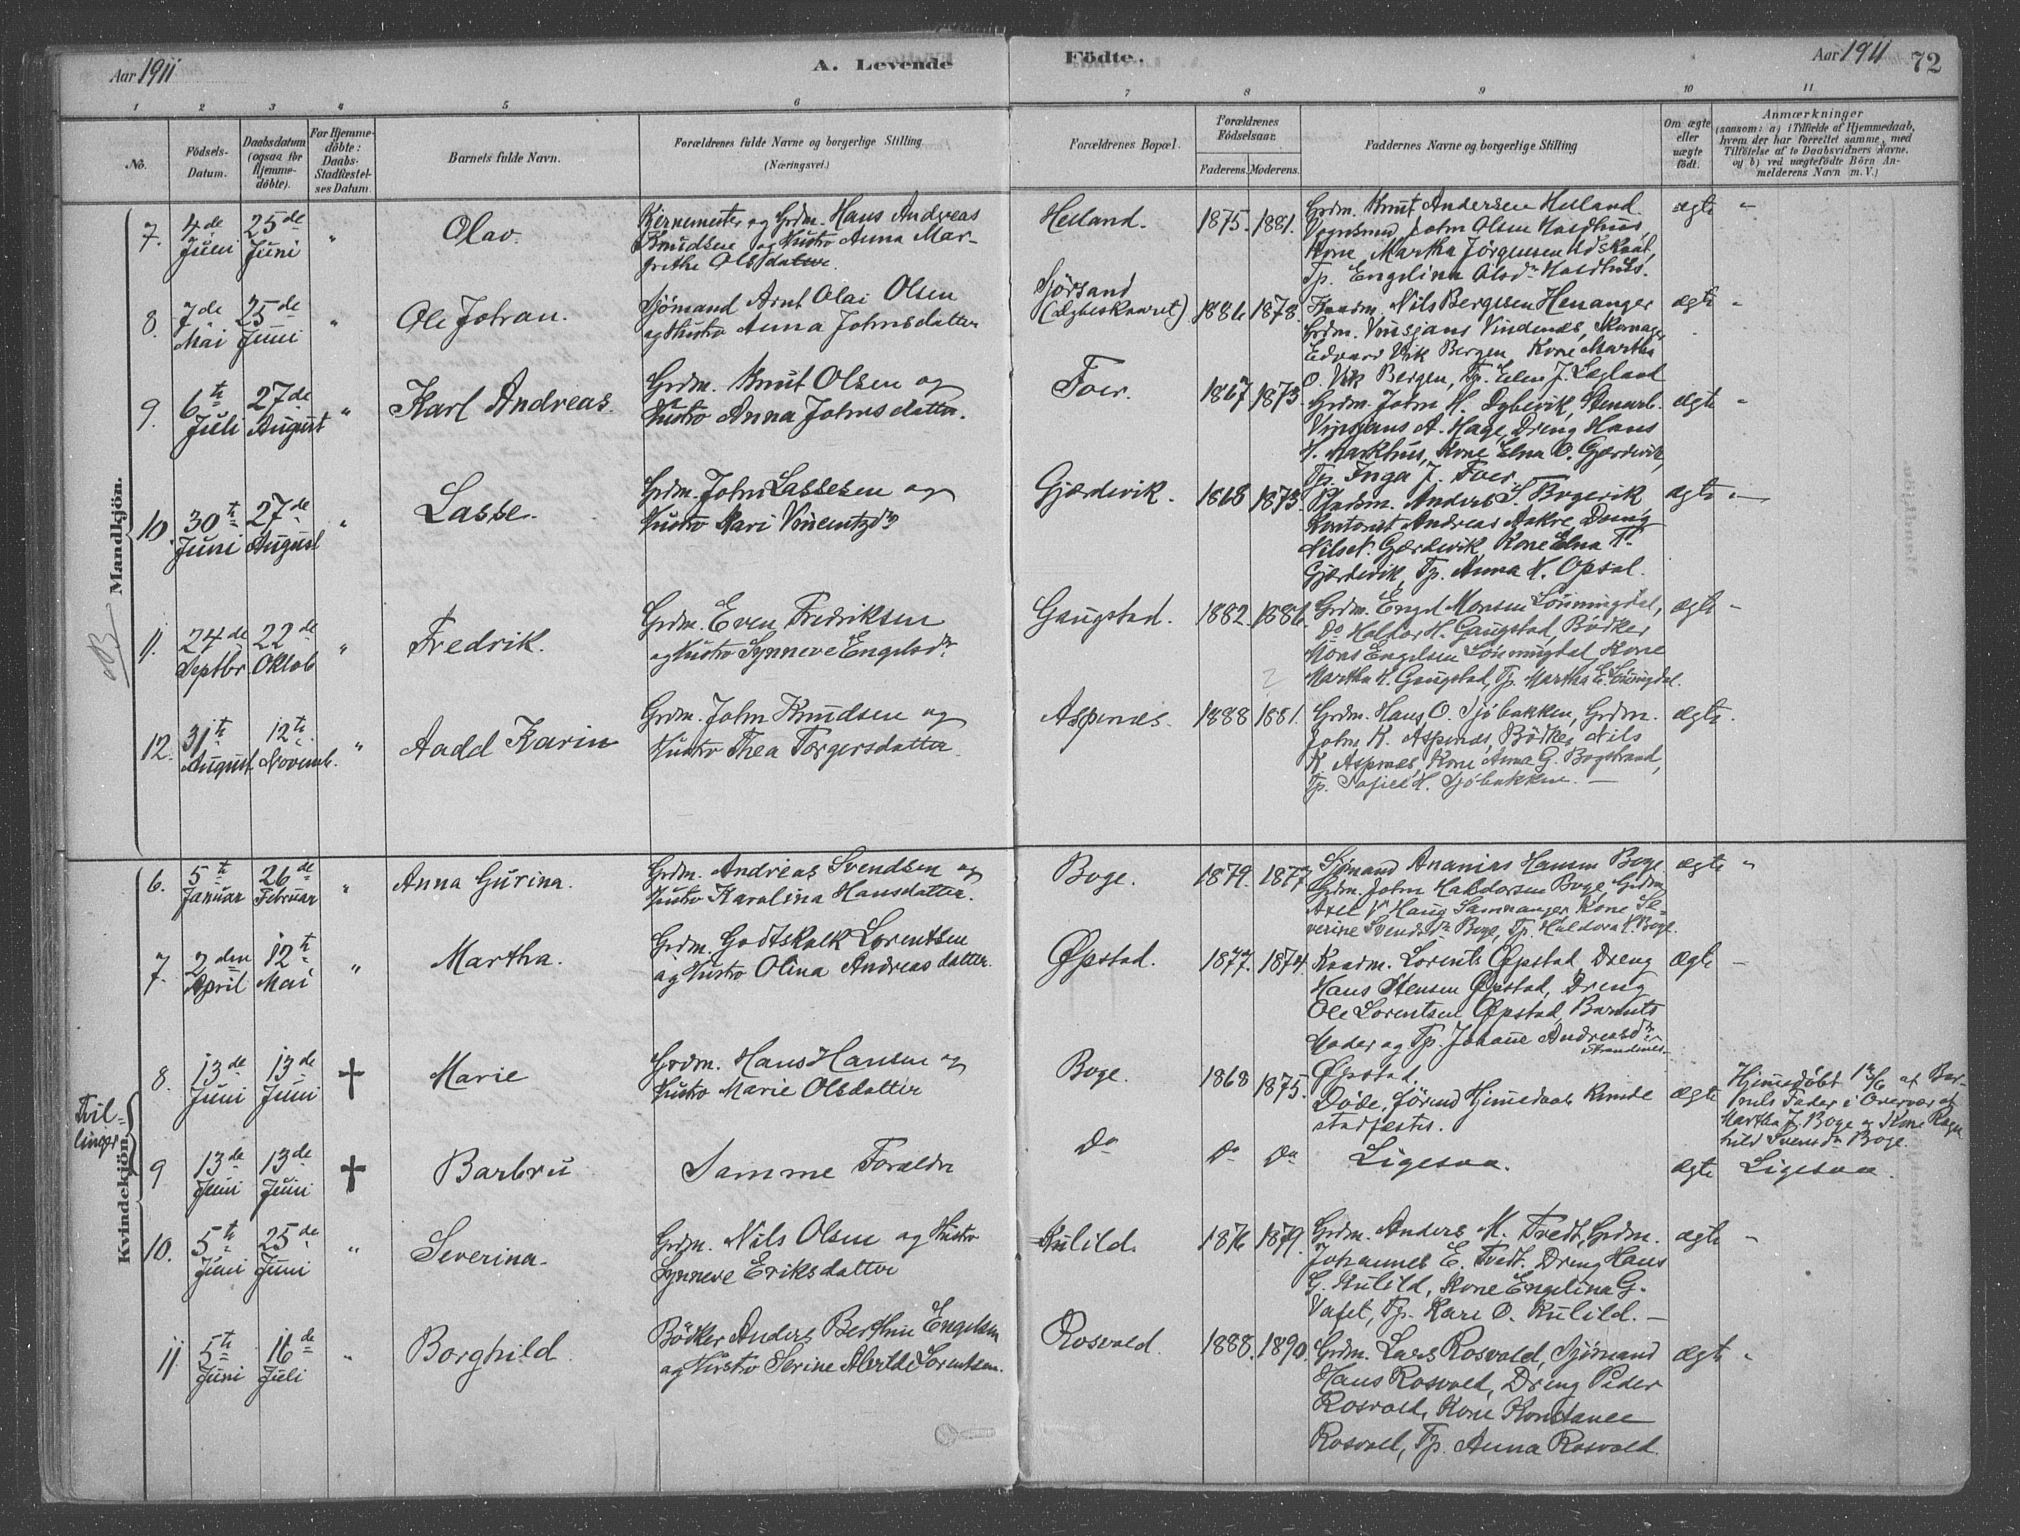 Aar 1911
A. Levende Födte.
Aar 1911 72
1 2 3 4 5 6 7 8 9 10 11
No.
Födsels-Datum.
Daabsdatum (ogsaa for Hjemme-döbte).
For Hjemme-döbte: Daabs-Stadfæstel-ses Datum.
Barnets fulde Navn.
Forældrenes fulde Navne og borgerlige Stilling (Næringsvei.)
Forældrenes Bopæl.
Forældrenes Födselsaar.
Faderens. Moderens.
Faddernes Navne og borgerlige Stilling
Om ægte eller uægte födt.
Anmærkninger
(saasom: a) i Tilfælde af Hjemmedaab,
hvem der har forrettet samme, med
Tilföielse af to Daabsvidners Navne.
og b) ved uægtefödte Börn An-
melderens Navn m. V.)
Mandkjön.
7. 4de Juni 25de Juni " Olav.
Kirnemester og Grdm. Hans Andreas
Knudsen og Hustro Anna Mar-
grethe Olsdatter.
Heiland. 1875. 1881.
Grdm. Knut Andersen Heiland
Vognsmd John Olsen Holdhus,
Kone Martha Jörgensen Udskaat,
Tp. Engelina Olsdr Holdhus.
ægte "
8. 7de Mai 25de Juni " Ole Johan.
Sjömand Arnt Olai Olsen
og Hustro Anna Johnsdatter
Sjörsand
1886 1878.
Nils Bergesen Henanger
Grdm. Vinsjans Vindenæs, Skomager
Edvard Vik Bergen, Kone Martha
O. Vik Bergen, Tp. Elen J. Lægland
ægte "
9. 6th Juli 27de August " Karl Andreas.
Grdm. Knut Olsen og
Hustro Anna Johnsdatter.
Foer. 1867 1873.
Grdm. John H. Dybevik, Stenarb.
Vinsjans A. Hage, Dreng Hans
H. Markhus, Kone Elna O. Gjærdevik,
Tp. Inga J. Foer.
ægte "
10. 30th Juni 27de August " Lasse.
Grdm. John Lassesen og
Hustro Kari Vincentzdr
Gjærdevik. 1868 1873.
Pladsm. Anders T. Bogevik
Kontorist Andreas Aakre, Dreng
Nils Gjærdevik, Kone Elna T.
Gjærdevik, Tp. Anna N. Opsal.
ægte "
11. 24de Septbr 22de Oktob " Fredrik.
Grdm. Even Fredriksen
og Hustro Synneve Engelsdr
Gaugstad. 1882. 1886.
Grdm. Engel Monsen Lönningdal,
Do Haldor H. Gaugstad, Bödker
Mons Engelsen Lönningdal, Kone
Martha H. Gaugstad, Tp. Martha E. Löningdal.
ægte "
12. 31th August 12te Novemb. " Aadd Karin
Grdm. John Knudsen og
Hustro Thea Torgersdatter.
Aspenæs. 1888 1881.
Grdm. Hans O. Sjöbakken, Grdm.
John K. Aspenæs, Bödker Nils
K. Aspenæs, Kone Anna G. Bogstrand,
Tp. Sofie H. Sjöbakken. —
ægte.
Kvindekjön.
6. 5th Januar 26de Februar " Anna Gurina.
Grdm. Andreas Svendsen og
Hustro Karolina Hansdatter.
Boge. 1879. 1877.
Sjömand Ananias Hansen Boge
Grdm. John Haldorsen Boge, Grdm.
Axel Haug Samnanger, Kone Se-
verine Svendsdr Boge, Tp. Haldora H. Boge.
ægte "
7. 2den April 12te Mai " Martha.
Grdm. Godtskalk Lorentsen
og Hustro Olina Andreasdatter.
Öpstad. 1877. 1874.
Kaarm. Lorents Öpstad, Dreng
Hans Stensen Öpstad, Dreng
Ole Lorentsen Öpstad, Barnets
Moder og Tp. Johane Andreasdr
Strandenes
Öpstad.
ægte —
Tvil-
linger
8. 13de Juni 13de Juni † Marie
Grdm. Hans Hansen og
Hustro Marie Olsdatter
Boge. 1868 1875.
Döde, förend Hjemedaab kunde
stadfæstes.
ægte
Hjemedöbt 13/6 af Bar-
nets Fader i Overvær af
Martha J. Boge og Kone Ragn-
hild Svensdr Boge.
9 13de Juni 13de Juni † Barbru
Samme Forældre
Do Do Do Ligesaa. ægte Ligesaa.
10. 5th Juni 25de Juni " Severina.
Grdm. Nils Olsen og Hustro
Synneve Eriksdatter
Kulild. 1876 1879.
Grdm. Anders M. Tvedt, Grdm.
Johannes E. Tvedt. Dreng Hans
G. Kulild, Kone Engelina G.
Vaset, Tp. Kari O. Kulild. —
ægte "
11 5th Juni 16de Juli " Borghild.
Bödker Anders Berthin Engelsen
og Hustro Serine Alette Lorentsen.
Rosvold. 1888. 1890.
Grdm. Lars Rosvold, Sjömand
Hans Rosvold, Dreng Peder
Rosvold, Kone Konstance
Rosvold, Tp. Anna Rosvold
ægte "